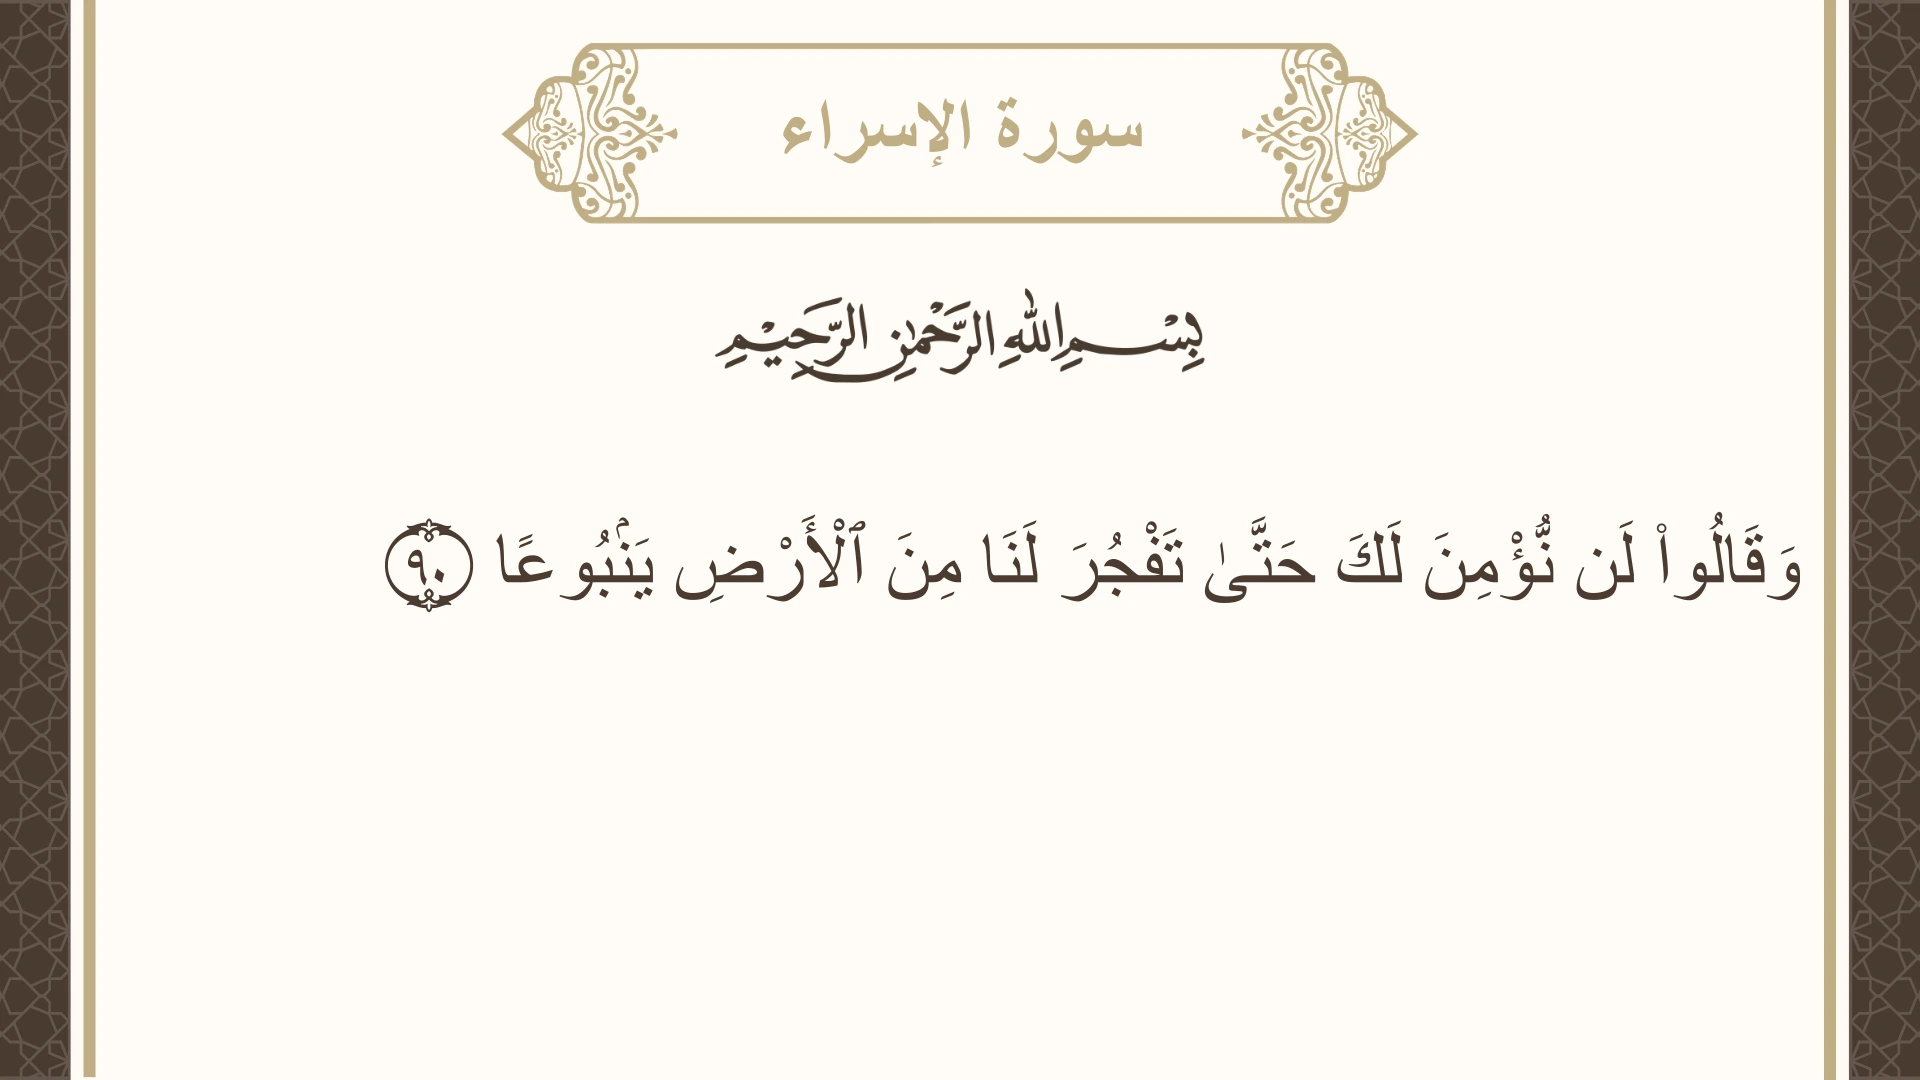 سورة الإسراء
بِسْمِ اللهِ الرَّحْمٰنِ الرَّحِيْمِ
وَقَالُوا۟ لَن نُّؤْمِنَ لَكَ حَتَّىٰ تَفْجُرَ لَنَا مِنَ ٱلْأَرْضِ يَنۢبُوعًا ٩٠